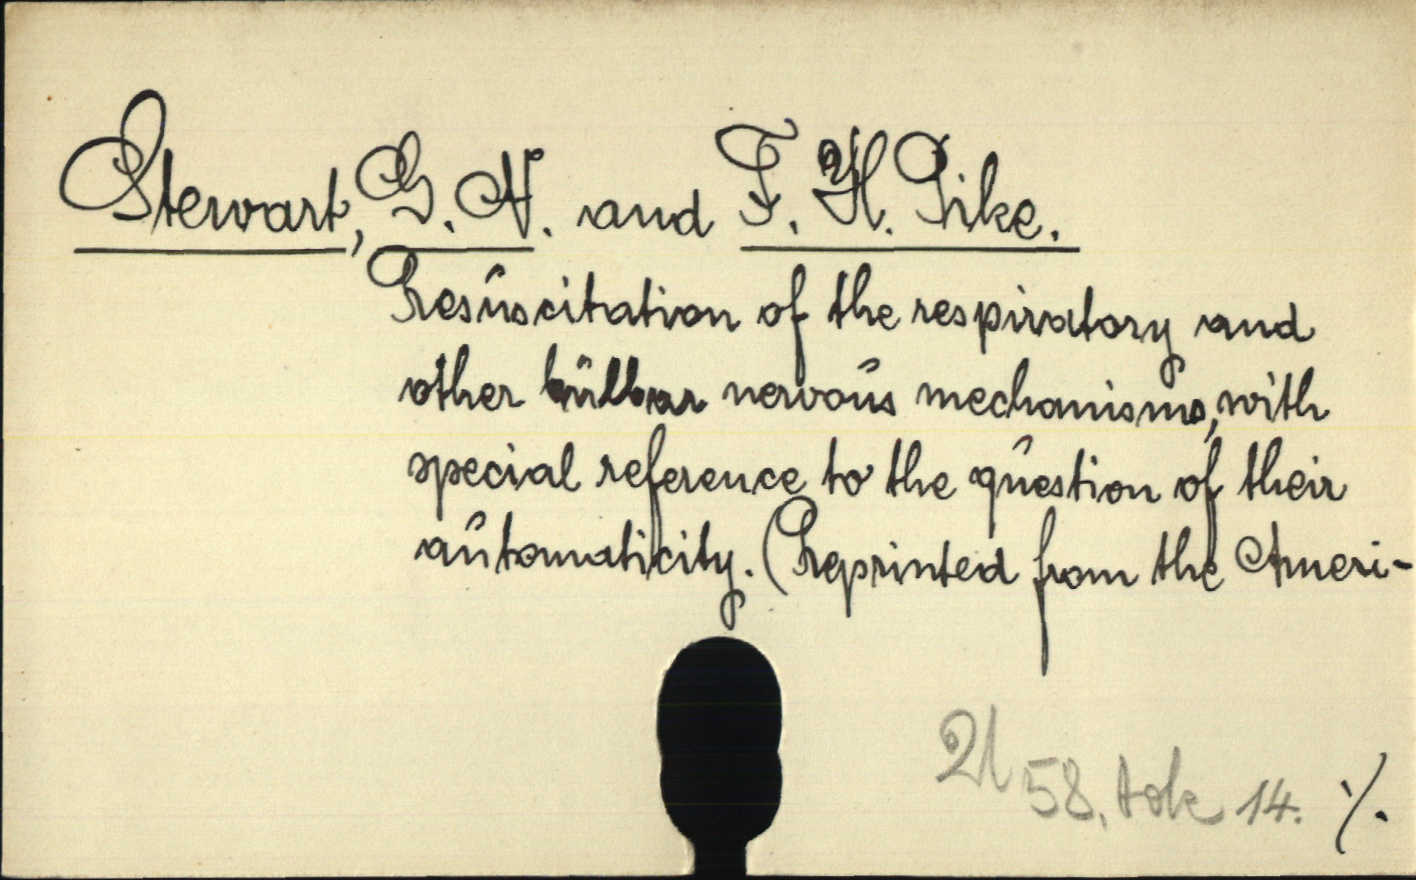 Stewart, G. N. and F. H. Pike.
Resuscitation of the respiratory and
other bulbar nervous mechanisms, with
special reference to the question of their
automaticity. (Reprinted from the Ameri-
58. tok 14. ·/.